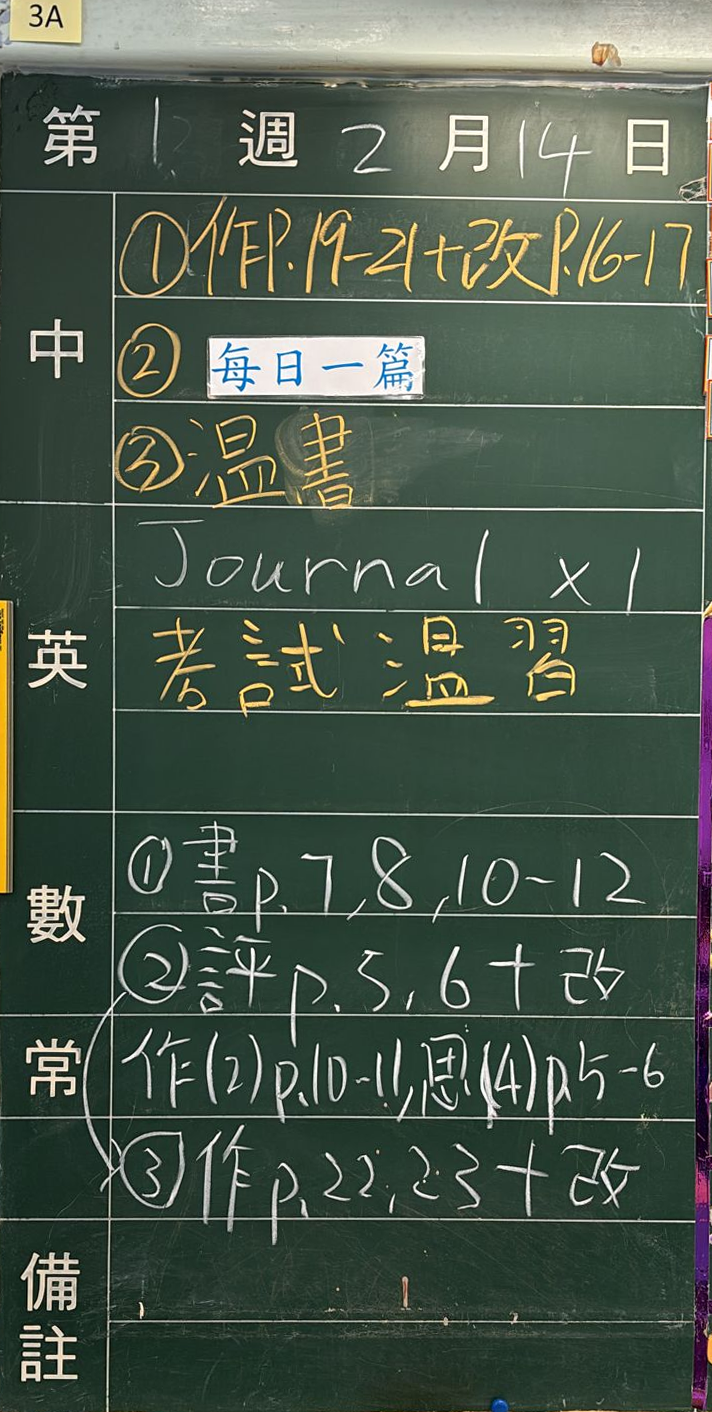 3A
第 週 2 月 14 日
中
①作P.19-21+改P.16-17
② 每日一篇
③温書
英
Journal x1
考試温習
數
①書p.7,8,10-12
②評p.5,6+改
常
作(2)p.10-11,思(4)p.5-6
③作p.22,23+改
備註